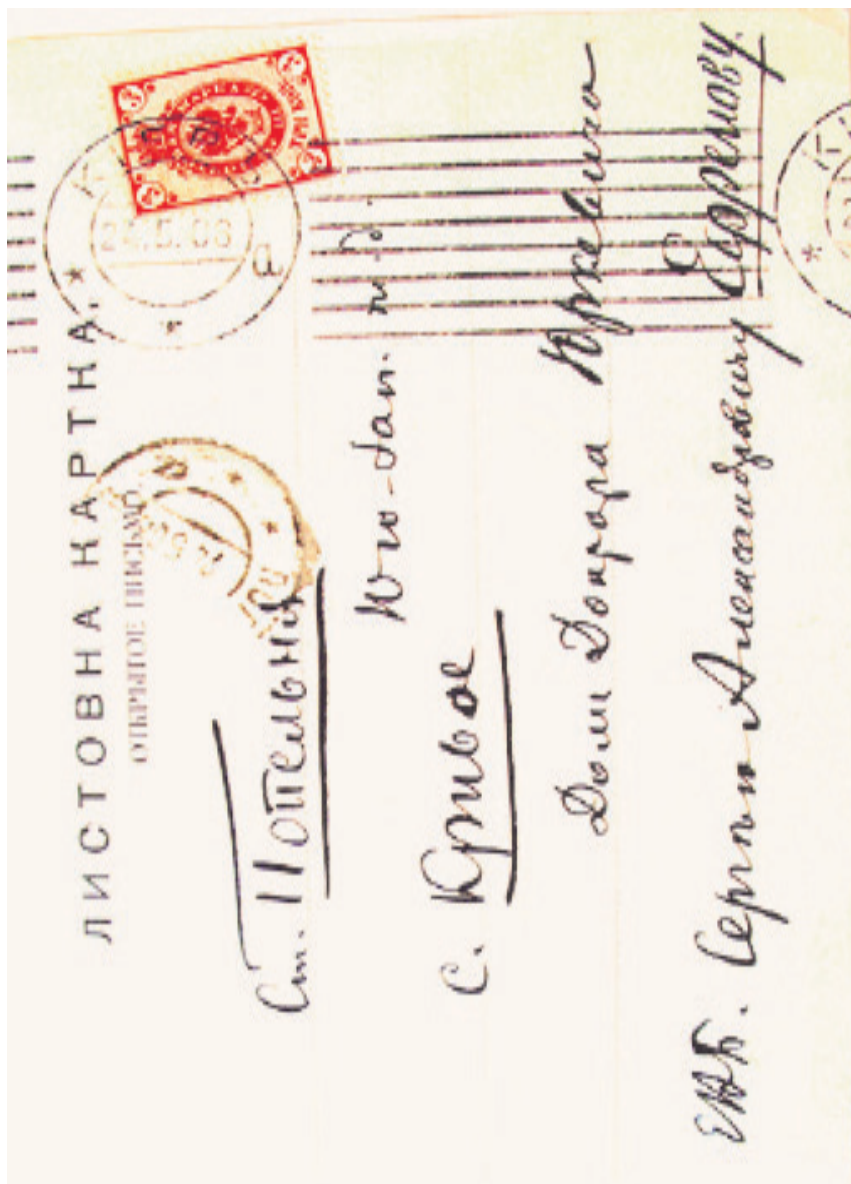 ЛИСТОВНА КАРТКА.
ОТКРЫТОЕ ПИСЬМО.
24.5.06
Ст. Попельня
Юго-Зап. ж. д.
С. Кривое
Домъ Доктора Юркевича
ЕВБ. Сергѣю Александровичу Ефремову.